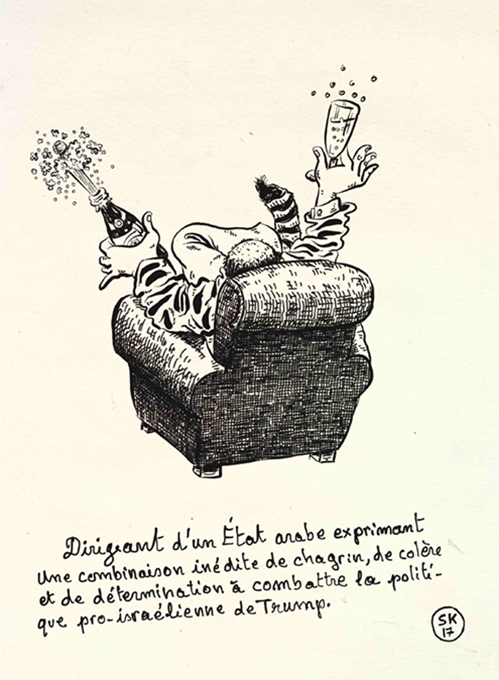 Dirigeant d'un État arabe exprimant
une combinaison inédite de chagrin, de colère
et de détermination à combattre la politi-
que pro-israélienne de Trump.
SK
17